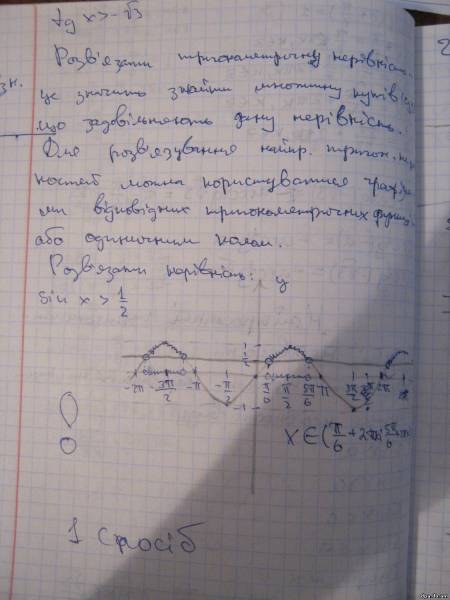 tg x > -√3
Розв'язати тригонометричну нерівність
зн.
це значить знайти множину кутів
що задовільняють дану нерівність.
Для розв'язування найпр. тригон.
ностей можна користуватися
ми відповідних тригонометричних функц
або одиничним колом.
Розв'язати нерівність: y
sin x > 1/2
1/2
-2π -3π/2 -π -π/2 π/6 π/2 5π/6 π 3π/2 2π
-1
x ∈ (π/6 + 2πn; 5π/6
1 спосіб